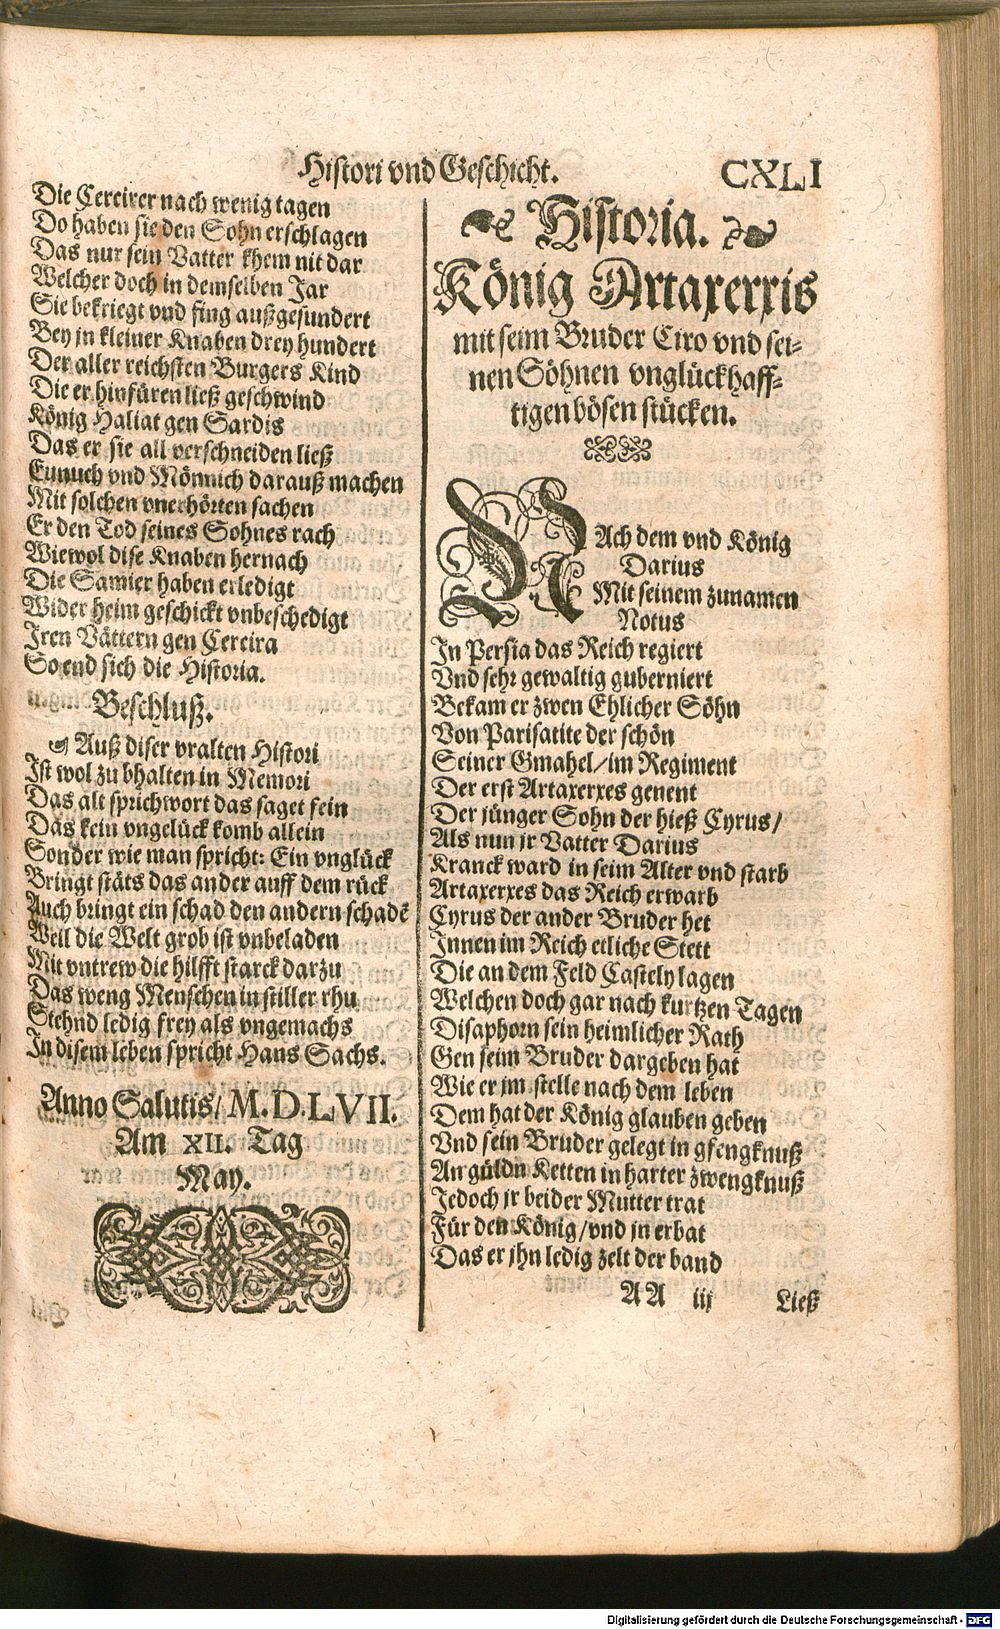 Histori vnd Geschicht. CXLI
Die Cercirer nach wenig tagen
Do haben sie den Sohn erschlagen
Das nur sein Vatter khem nit dar
Welcher doch in demselben Jar
Sie bekriegt vnd fing außgesundert
Bey jn kleiner Knaben drey hundert
Der aller reichsten Burgers Kind
Die er hinfüren ließ geschwind
König Haliat gen Sardis
Das er sie all verschneiden ließ
Eunuch vnd Mönnich darauß machen
Mit solchen vnerhörten sachen
Er den Tod seines Sohnes rach
Wiewol dise Knaben hernach
Die Samier haben erledigt
Wider heim geschickt vnbeschedigt
Iren Vättern gen Cercira
So end sich die Historia.
Beschluß.
Auß diser vralten Histori
Ist wol zu bhalten in Memori
Das alt sprichwort das saget fein
Das kein vngelück komb allein
Sonder wie man spricht: Ein vnglück
Bringt stäts das ander auff dem rück
Auch bringt ein schad den andern schadē
Weil die Welt grob ist vnbeladen
Mit vntrew die hilfft starck darzu
Das weng Menschen in stiller rhu
Stehnd ledig frey als vngemachs
In disem leben spricht Hans Sachs.
Anno Salutis/ M.D.LVII.
Am XII. Tag
May.
Historia.
König Artaxerxis
mit seim Bruder Ciro vnd sei=
nen Söhnen vnglückhaff=
tigen bösen stücken.
NAch dem vnd König
Darius
Mit seinem zunamen
Notus
In Persia das Reich regiert
Vnd sehr gewaltig guberniert
Bekam er zwen Ehlicher Söhn
Von Parisatite der schön
Seiner Gmahel/im Regiment
Der erst Artaxerxes genent
Der jünger Sohn der hieß Cyrus/
Als nun jr Vatter Darius
Kranck ward in seim Alter vnd starb
Artaxerxes das Reich erwarb
Cyrus der ander Bruder het
Innen im Reich etliche Stett
Die an dem Feld Castely lagen
Welchen doch gar nach kurtzen Tagen
Disaphorn sein heimlicher Rath
Gen seim Bruder dargeben hat
Wie er jm stelle nach dem leben
Dem hat der König glauben geben
Vnd sein Bruder gelegt in gfengknuß
An güldn Ketten in harter zwengknuß
Jedoch jr beider Mutter trat
Für den König/vnd jn erbat
Das er jhn ledig zelt der band
AA iij Ließ
Digitalisierung gefördert durch die Deutsche Forschungsgemeinschaft - DFG